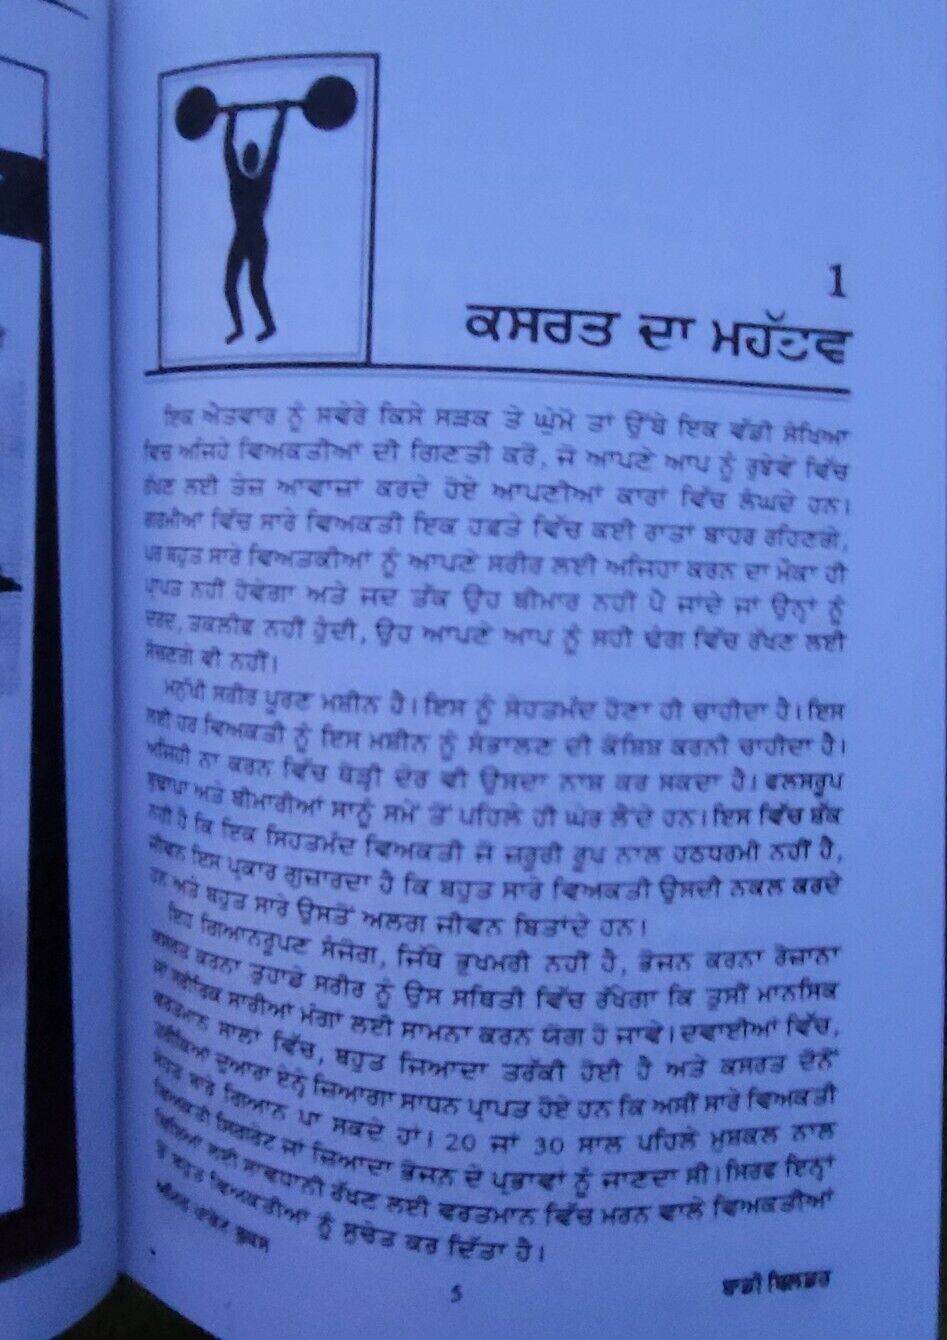 1
ਕਸਰਤ ਦਾ ਮਹੱਤਵ
ਇਕ ਐਤਵਾਰ ਨੂੰ ਸਵੇਰੇ ਕਿਸੇ ਸੜਕ ਤੇ ਘੁੰਮੋ ਤਾਂ ਉੱਥੇ ਇਕ ਵੱਡੀ ਸੰਖਿਆ
ਵਿਚ ਅਜਿਹੇ ਵਿਅਕਤੀਆਂ ਦੀ ਗਿਣਤੀ ਕਰੋ, ਜੋ ਆਪਣੇ ਆਪ ਨੂੰ ਰੁਝੇਵੇਂ ਵਿੱਚ
ਰੱਖਣ ਲਈ ਤੇਜ਼ ਆਵਾਜ਼ਾਂ ਕਰਦੇ ਹੋਏ ਆਪਣੀਆਂ ਕਾਰਾਂ ਵਿੱਚ ਲੰਘਦੇ ਹਨ।
ਗਰਮੀਆਂ ਵਿੱਚ ਸਾਰੇ ਵਿਅਕਤੀ ਇਕ ਹਫ਼ਤੇ ਵਿੱਚ ਕਈ ਰਾਤਾਂ ਬਾਹਰ ਰਹਿਣਗੇ,
ਪਰ ਬਹੁਤ ਸਾਰੇ ਵਿਅਤਕੀਆਂ ਨੂੰ ਆਪਣੇ ਸਰੀਰ ਲਈ ਅਜਿਹਾ ਕਰਨ ਦਾ ਮੌਕਾ ਹੀ
ਪ੍ਰਾਪਤ ਨਹੀਂ ਹੋਵੇਗਾ ਅਤੇ ਜਦ ਤੱਕ ਉਹ ਬੀਮਾਰ ਨਹੀਂ ਪੈ ਜਾਂਦੇ ਜਾਂ ਉਨ੍ਹਾਂ ਨੂੰ
ਦਰਦ, ਤਕਲੀਫ ਨਹੀਂ ਹੁੰਦੀ, ਉਹ ਆਪਣੇ ਆਪ ਨੂੰ ਸਹੀ ਢੰਗ ਵਿੱਚ ਰੱਖਣ ਲਈ
ਸੋਚਣਗੇ ਵੀ ਨਹੀਂ।
ਮਨੁੱਖੀ ਸਰੀਰ ਪੂਰਣ ਮਸ਼ੀਨ ਹੈ। ਇਸ ਨੂੰ ਸੇਹਤਮੰਦ ਹੋਣਾ ਹੀ ਚਾਹੀਦਾ ਹੈ। ਇਸ
ਲਈ ਹਰ ਵਿਅਕਤੀ ਨੂੰ ਇਸ ਮਸ਼ੀਨ ਨੂੰ ਸੰਭਾਲਣ ਦੀ ਕੋਸ਼ਿਸ਼ ਕਰਨੀ ਚਾਹੀਦਾ ਹੈ।
ਅਜਿਹੀ ਨਾ ਕਰਨ ਵਿੱਚ ਥੋੜ੍ਹੀ ਦੇਰ ਵੀ ਉਸਦਾ ਨਾਸ਼ ਕਰ ਸਕਦਾ ਹੈ। ਫਲਸਰੂਪ
ਬੁਢਾਪਾ ਅਤੇ ਬੀਮਾਰੀਆਂ ਸਾਨੂੰ ਸਮੇਂ ਤੋਂ ਪਹਿਲੇ ਹੀ ਘੇਰ ਲੈਂਦੇ ਹਨ। ਇਸ ਵਿੱਚ ਸ਼ੱਕ
ਨਹੀਂ ਹੈ ਕਿ ਇਕ ਸਿਹਤਮੰਦ ਵਿਅਕਤੀ ਜੋ ਜ਼ਰੂਰੀ ਰੂਪ ਨਾਲ ਹਠਧਰਮੀ ਨਹੀਂ ਹੈ,
ਜੀਵਨ ਇਸ ਪ੍ਰਕਾਰ ਗੁਜ਼ਾਰਦਾ ਹੈ ਕਿ ਬਹੁਤ ਸਾਰੇ ਵਿਅਕਤੀ ਉਸਦੀ ਨਕਲ ਕਰਦੇ
ਹਨ ਅਤੇ ਬਹੁਤ ਸਾਰੇ ਉਸਤੋਂ ਅਲਗ ਜੀਵਨ ਬਿਤਾਂਦੇ ਹਨ।
ਇਹ ਗਿਆਨਰੂਪਣ ਸੰਜੋਗ, ਜਿੱਥੇ ਭੁਖਮਰੀ ਨਹੀਂ ਹੈ, ਭੋਜਨ ਕਰਨਾ ਰੋਜ਼ਾਨਾ
ਕਸਰਤ ਕਰਨਾ ਤੁਹਾਡੇ ਸਰੀਰ ਨੂੰ ਉਸ ਸਥਿਤੀ ਵਿੱਚ ਰੱਖੇਗਾ ਕਿ ਤੁਸੀਂ ਮਾਨਸਿਕ
ਜਾਂ ਸਰੀਰਿਕ ਸਾਰੀਆਂ ਮੰਗਾਂ ਲਈ ਸਾਮਨਾ ਕਰਨ ਯੋਗ ਹੋ ਜਾਵੋ। ਦਵਾਈਆਂ ਵਿੱਚ,
ਵਰਤਮਾਨ ਸਾਲਾਂ ਵਿੱਚ, ਬਹੁਤ ਜਿਆਦਾ ਤਰੱਕੀ ਹੋਈ ਹੈ ਅਤੇ ਕਸਰਤ ਦੋਨੋਂ
ਤਰੀਕਿਆਂ ਦੁਆਰਾ ਏਨ੍ਹੇ ਜ਼ਿਆਗਾ ਸਾਧਨ ਪ੍ਰਾਪਤ ਹੋਏ ਹਨ ਕਿ ਅਸੀਂ ਸਾਰੇ ਵਿਅਕਤੀ
ਸਰਤ ਬਾਰੇ ਗਿਆਨ ਪਾ ਸਕਦੇ ਹਾਂ। 20 ਜਾਂ 30 ਸਾਲ ਪਹਿਲੇ ਮੁਸ਼ਕਲ ਨਾਲ
ਵਿਅਕਤੀ ਸਿਗਰੇਟ ਜਾਂ ਜ਼ਿਆਦਾ ਭੋਜਨ ਦੇ ਪ੍ਰਭਾਵਾਂ ਨੂੰ ਜਾਣਦਾ ਸੀ। ਸਿਰਫ ਇਨ੍ਹਾਂ
ਲਈ ਸਾਵਧਾਨੀ ਰੱਖਣ ਲਈ ਵਰਤਮਾਨ ਵਿੱਚ ਮਰਨ ਵਾਲੇ ਵਿਅਕਤੀਆਂ
ਨੇ ਬਹੁਤ ਵਿਅਕਤੀਆਂ ਨੂੰ ਸੁਚੇਤ ਕਰ ਦਿੱਤਾ ਹੈ।
ਪਾਕੇਟ ਬੁਕਸ
5
ਬਾਡੀ ਬਿਲਡਰ